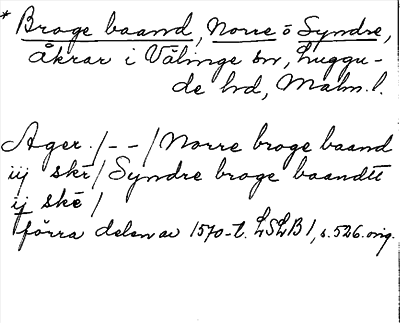 * Broge baand, Norre o Syndre,
åkrar i Välinge sn, Luggu-
de hd, Malm. l.
Ager. /- - / Norre broge baand
iij skr / Syndre broge baandtt
ij ske /
förra delen av 1570-t. LSLB 1, s. 526. orig.